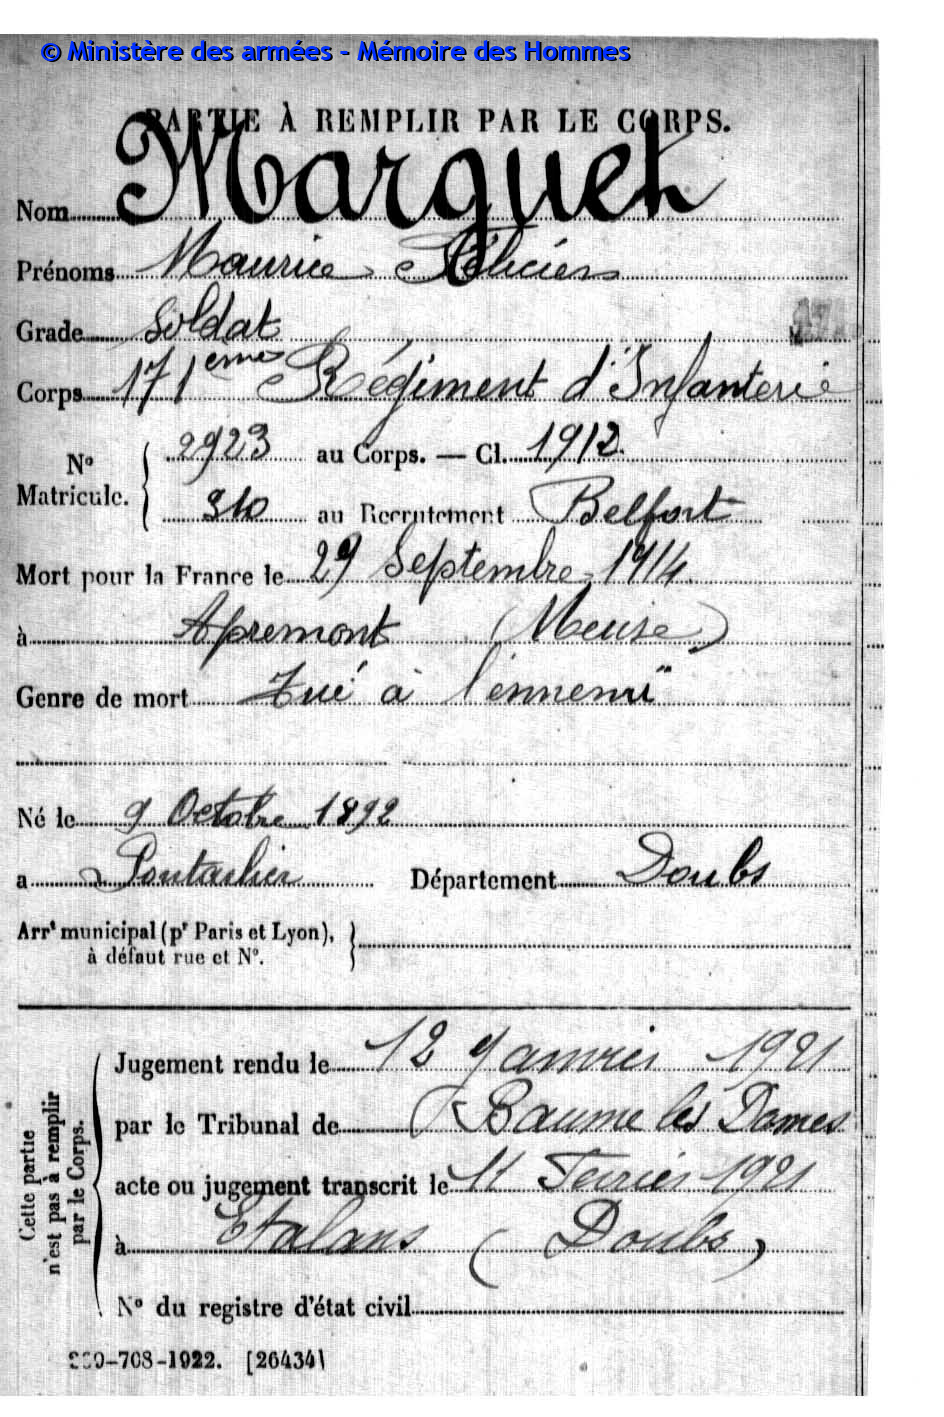 © Ministère des armées - Mémoire des Hommes
PARTIE À REMPLIR PAR LE CORPS.
Nom Marguet
Prénoms Maurice Félicien
Grade Soldat
Corps 171ème Régiment d'Infanterie
N° Matricule. 2923 au Corps. — Cl. 1912.
310 au Recrutement Belfort
Mort pour la France le 29 Septembre 1914
à Apremont (Meuse)
Genre de mort Tué à l'ennemi
Né le 9 Octobre 1892
a Pontarlier Département Doubs
Arrt municipal (pr Paris et Lyon),
à défaut rue et N°.
Cette partie
n'est pas à remplir
par le Corps.
Jugement rendu le 12 Janvier 1921
par le Tribunal de Baume les Dames
acte ou jugement transcrit le 11 Fevrier 1921
à Etalans (Doubs)
N° du registre d'état civil
-708-1922. [26434]